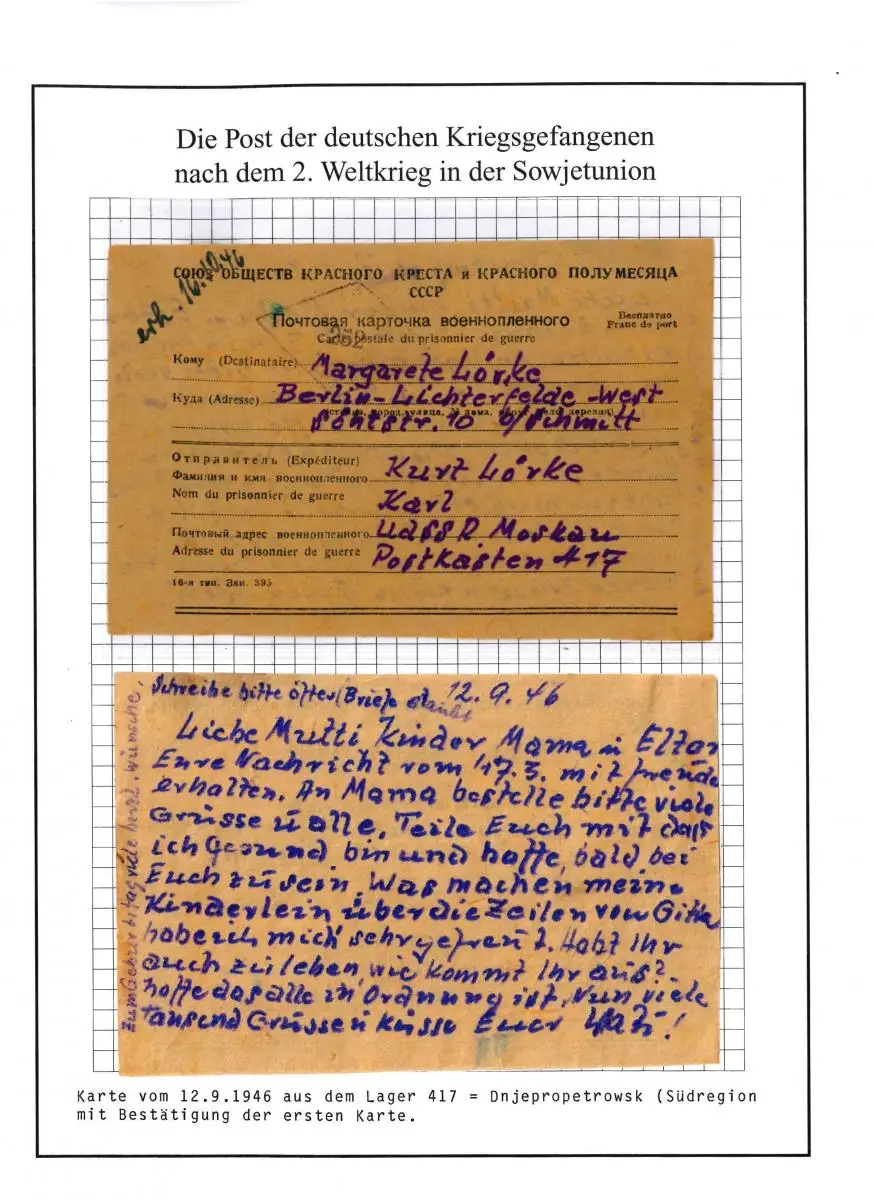 Die Post der deutschen Kriegsgefangenen
nach dem 2. Weltkrieg in der Sowjetunion
erh. 16.10.46
СОЮЗ ОБЩЕСТВ КРАСНОГО КРЕСТА и КРАСНОГО ПОЛУМЕСЯЦА
СССР
Почтовая карточка военнопленного
Бесплатно
Franc de port
Carte postale du prisonnier de guerre
252
Кому (Destinataire) Margarete Lörke
Куда (Adresse) Berlin-Lichterfelde-West
10 b/Schmitt
Отправитель (Expéditeur)
Фамилия и имя военнопленного Kurt Lörke
Nom du prisonnier de guerre Karl
Почтовый адрес военнопленного UdSSR Moskau
Adresse du prisonnier de guerre Postkasten 417
16-я тип. Зак. 395
Schreibe bitte öfter (Briefe erlaubt
12.9.46
Liebe Mutti Kinder Mama u Eltern
Eure Nachricht vom 17.3. mit freude
erhalten. An Mama bestelle bitte viele
Grüsse u alle. Teile Euch mit dass
ich Gesund bin und hoffe bald bei
Euch zu sein. Was machen meine
Kinderlein über die Zeilen von Gitta
habe ich mich sehr gefreut. Habt Ihr
auch zu leben wie kommt Ihr aus?
hoffe das alle in Ordnung ist. Nun viele
tausend Grüsse u küsse Euer Vati!
zum Geburtstag viele herzl. wünsche.
Karte vom 12.9.1946 aus dem Lager 417 = Dnjepropetrowsk (Südregion
mit Bestätigung der ersten Karte.